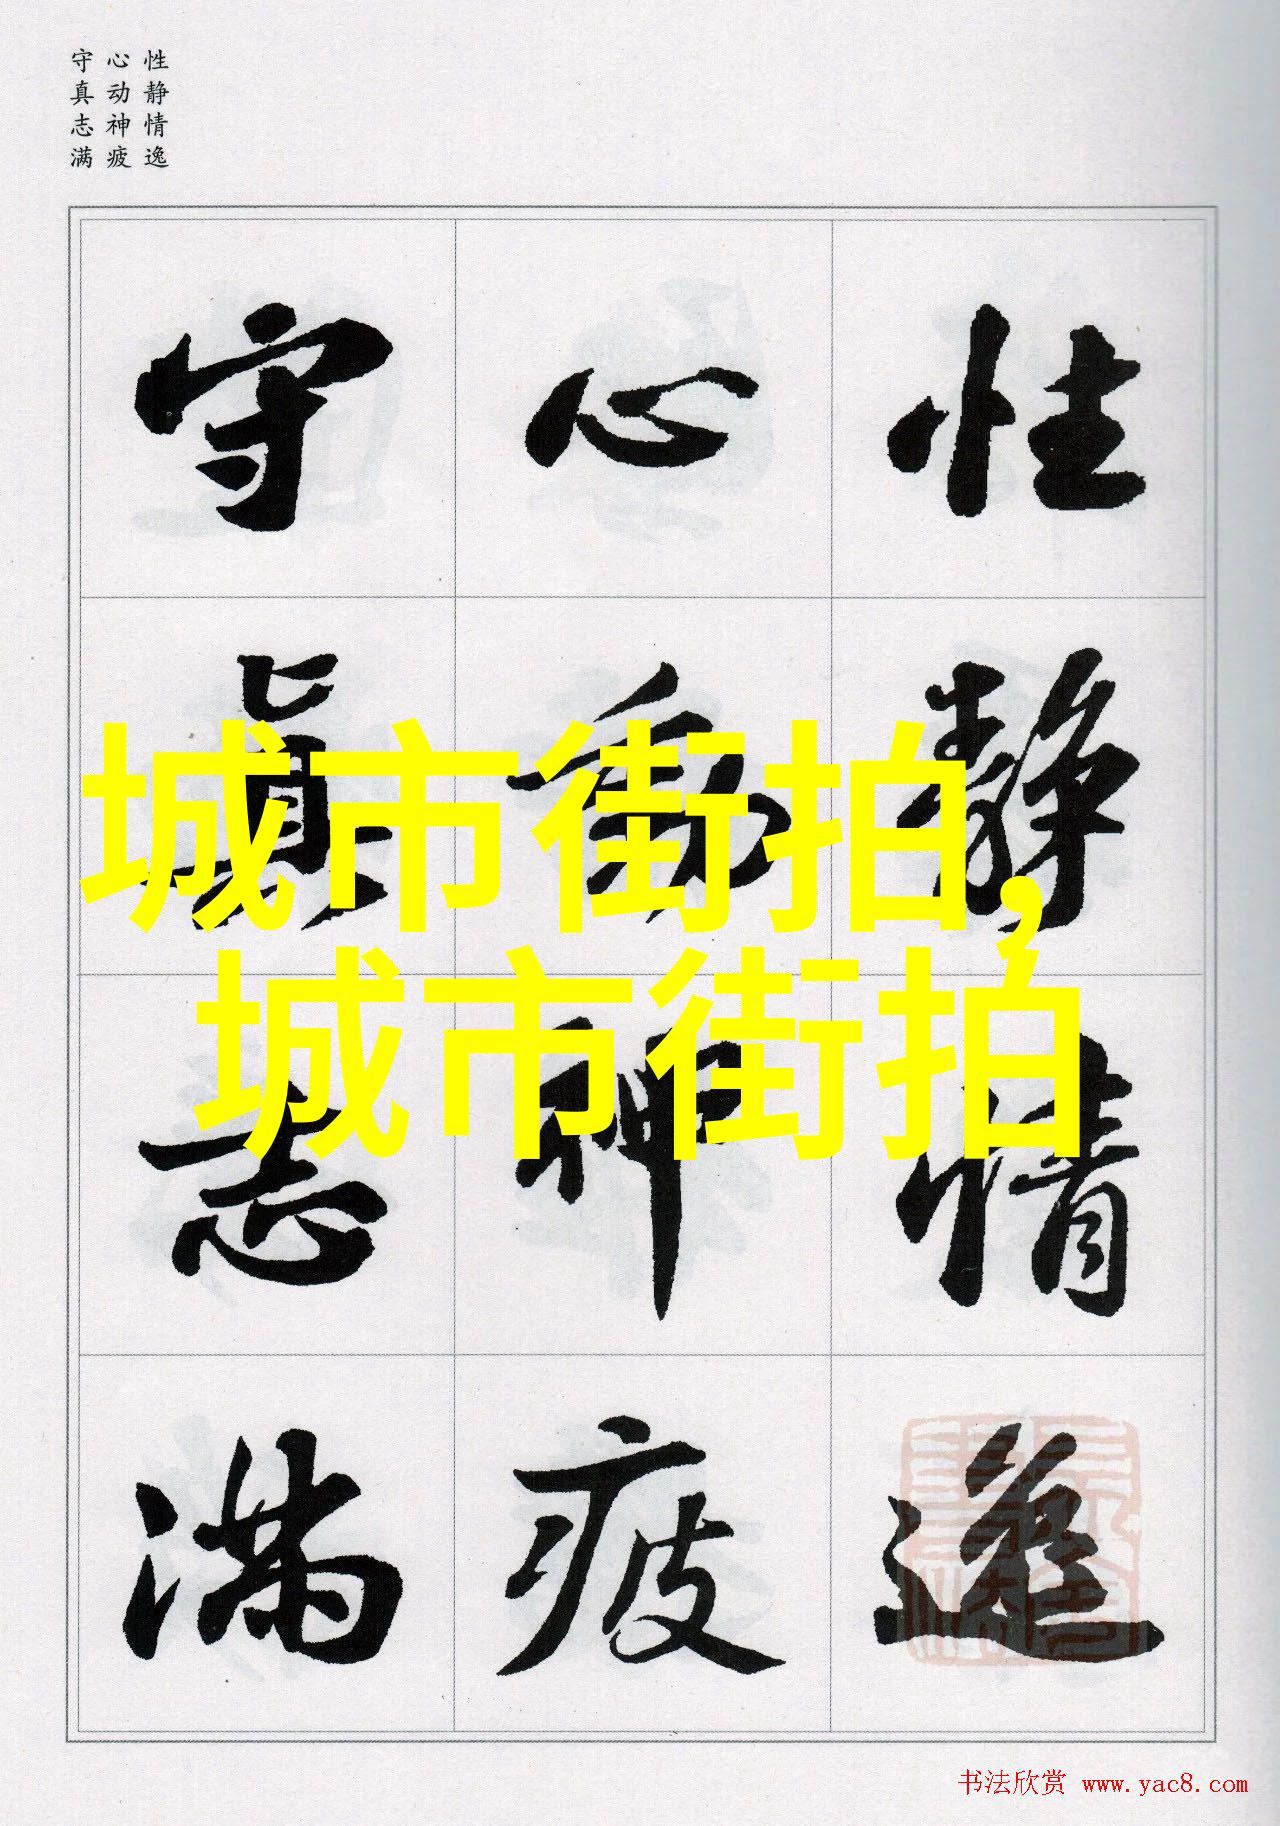 性静情逸
心动神疲
守真志满
性静情逸
心動神疲
守真志满
城市街拍,
城市街拍
书法欣赏 www.yac8.com